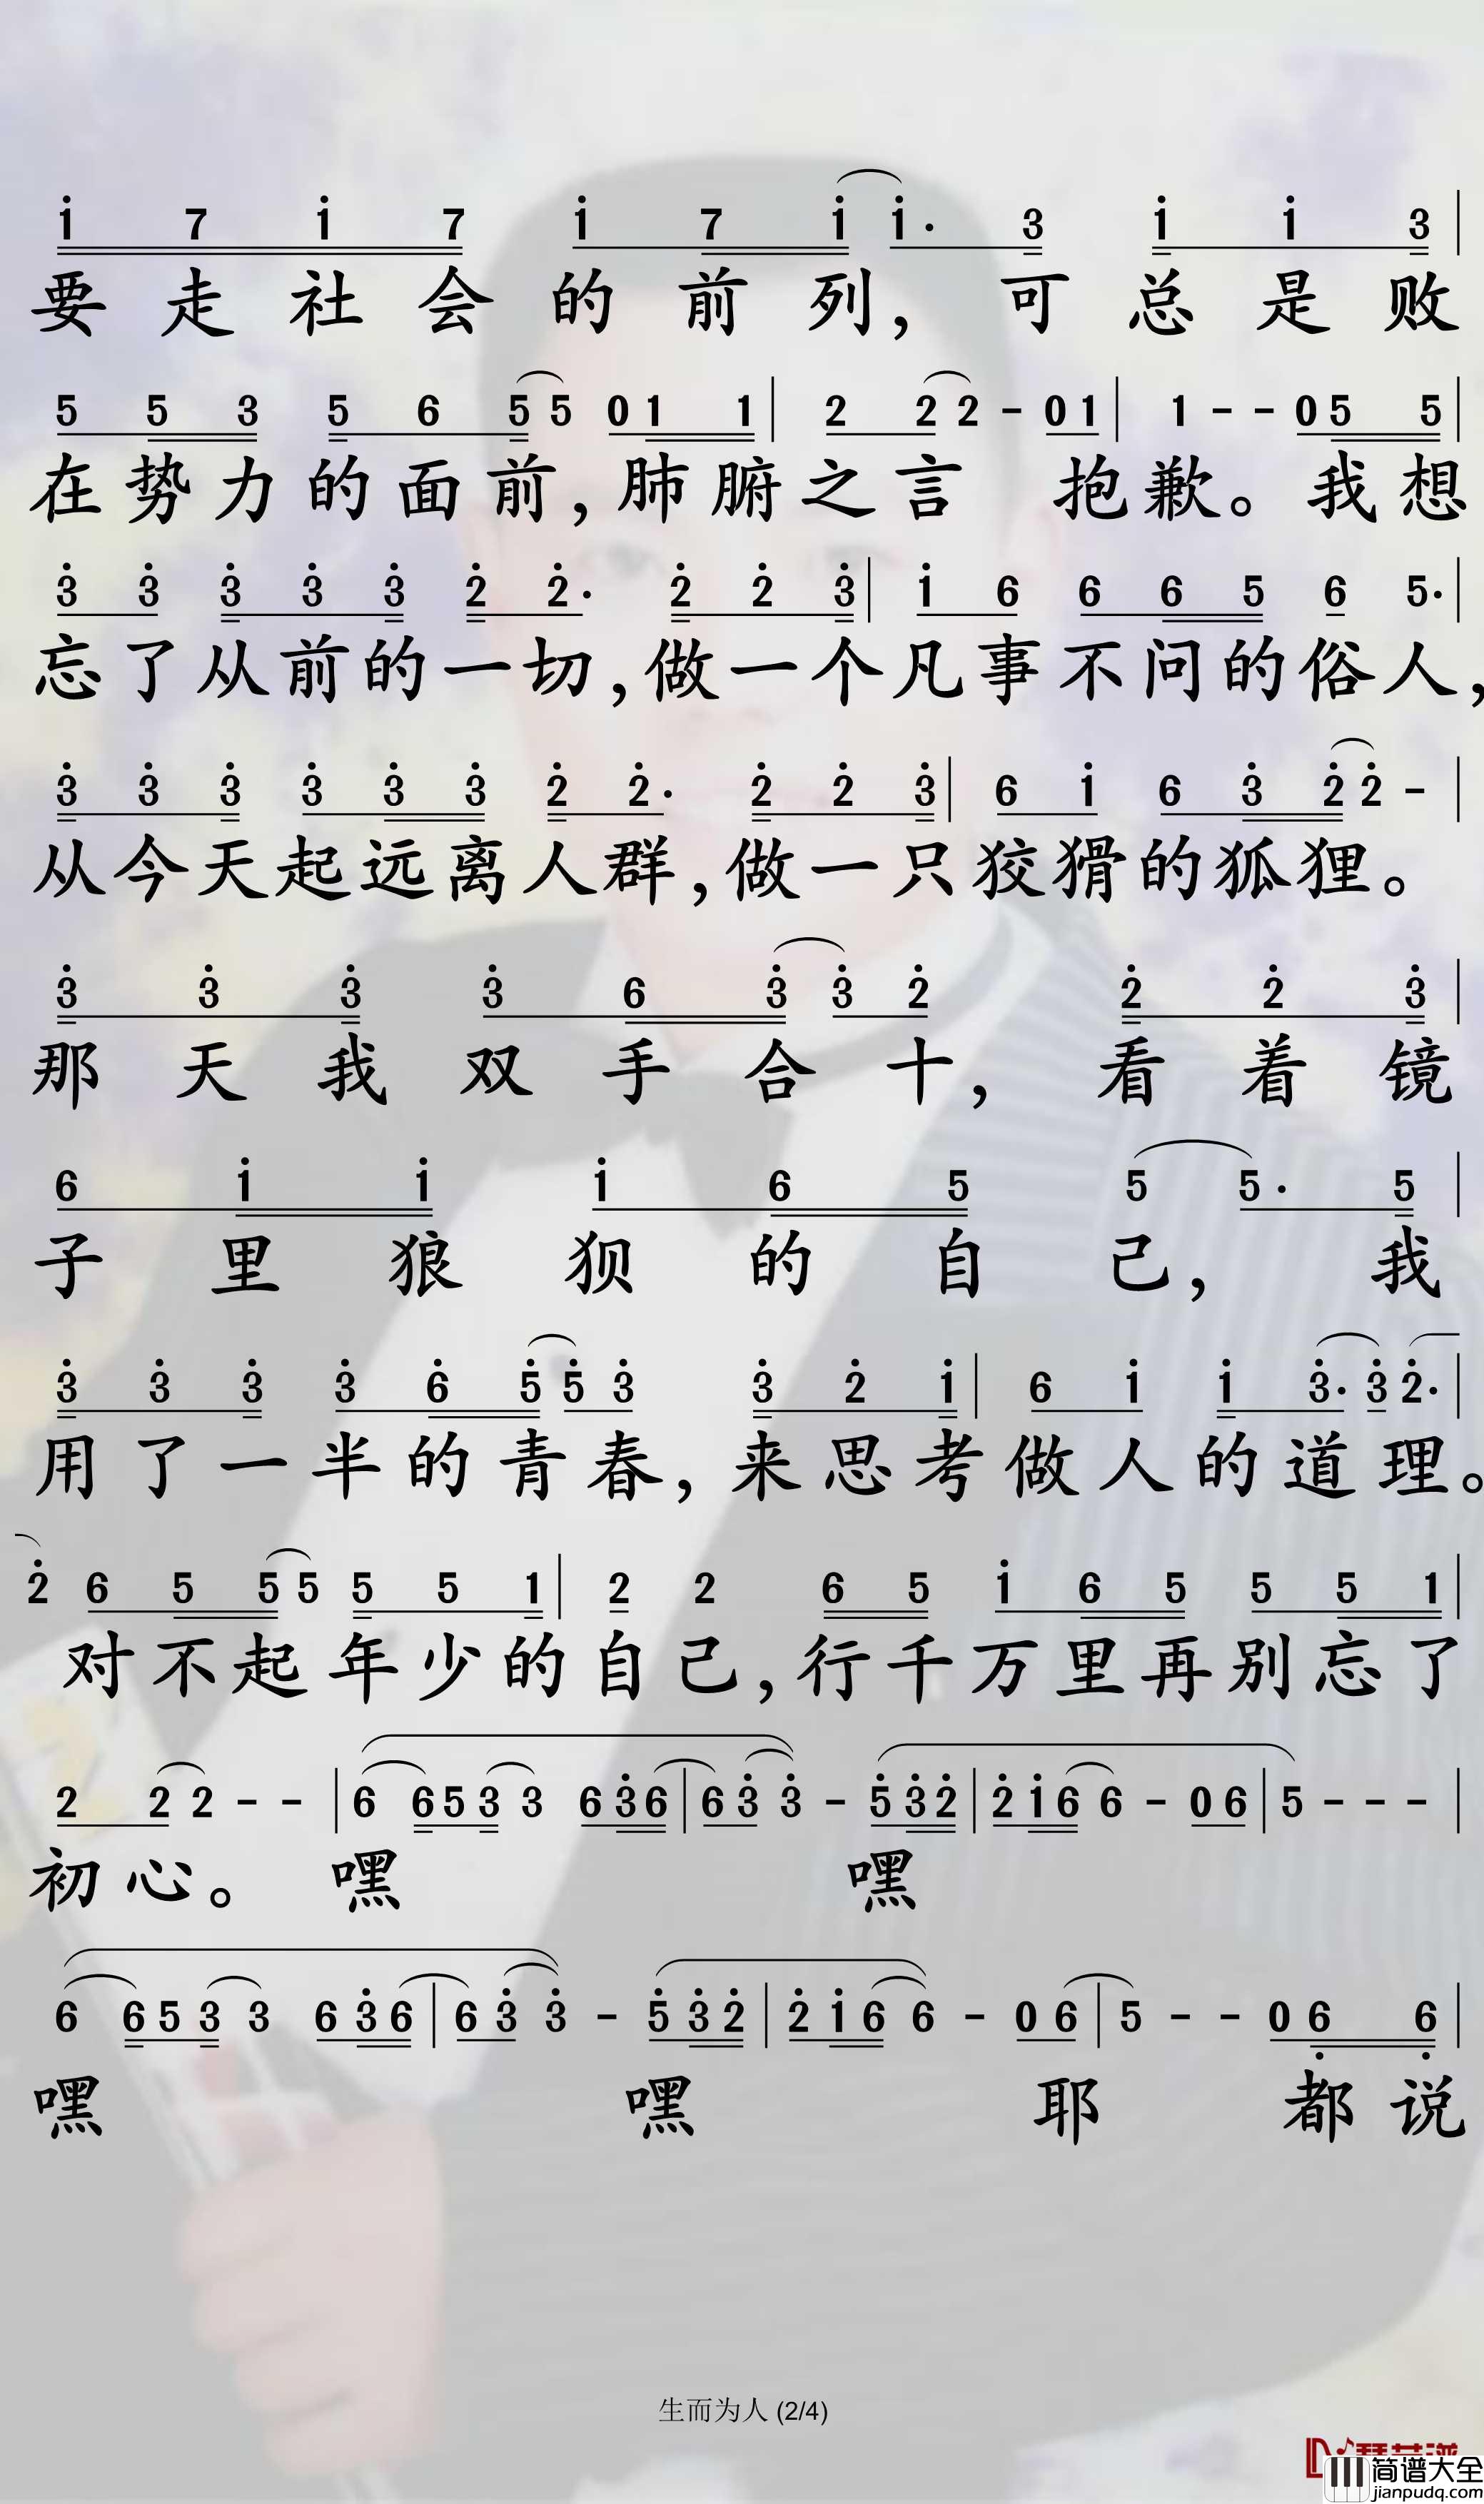 1̇ 7 1̇ 7 1̇ 7 1̇ 1̇· 3 1̇ 1̇ 3 |
要走社会的前列，可总是败
5 5 3 5 6 5 5 0 1 1 | 2 2 2 - 0 1 | 1 - - 0 5 5 |
在势力的面前，肺腑之言 抱歉。我想
3̇ 3̇ 3̇ 3̇ 3̇ 2̇ 2̇· 2̇ 2̇ 3̇ | 1̇ 6 6 6 5 6 5· |
忘了从前的一切，做一个凡事不问的俗人，
3̇ 3̇ 3̇ 3̇ 3̇ 3̇ 2̇ 2̇· 2̇ 2̇ 3̇ | 6 1̇ 6 3̇ 2̇ 2̇ - |
从今天起远离人群，做一只狡猾的狐狸。
3̇ 3̇ 3̇ 3̇ 6 3̇ 3̇ 2̇ 2̇ 2̇ 3̇ |
那天我双手合十，看着镜
6 1̇ 1̇ 1̇ 6 5 5 5· 5 |
子里狼狈的自己，我
3̇ 3̇ 3̇ 3̇ 6̇ 5̇ 5̇ 3̇ 3̇ 2̇ 1̇ | 6 1̇ 1̇ 3̇· 3̇ 2̇· |
用了一半的青春，来思考做人的道理。
2̇ 6 5 5 5 5 5 1 | 2 2 6 5 1̇ 6 5 5 5 1 |
对不起年少的自己，行千万里再别忘了
2 2 2 - - | 6 6 5 3 3 6 3̇ 6 | 6 3̇ 3̇ - 5̇ 3̇ 2̇ | 2̇ 1̇ 6 6 - 0 6 | 5 - - - |
初心。嘿 嘿
6 6 5 3 3 6 3̇ 6 | 6 3̇ 3̇ - 5̇ 3̇ 2̇ | 2̇ 1̇ 6 6 - 0 6 | 5 - - 0 6̣ 6̣ |
嘿 嘿 耶 都说
生而为人 (2/4)
简谱大全
jianpudq.com